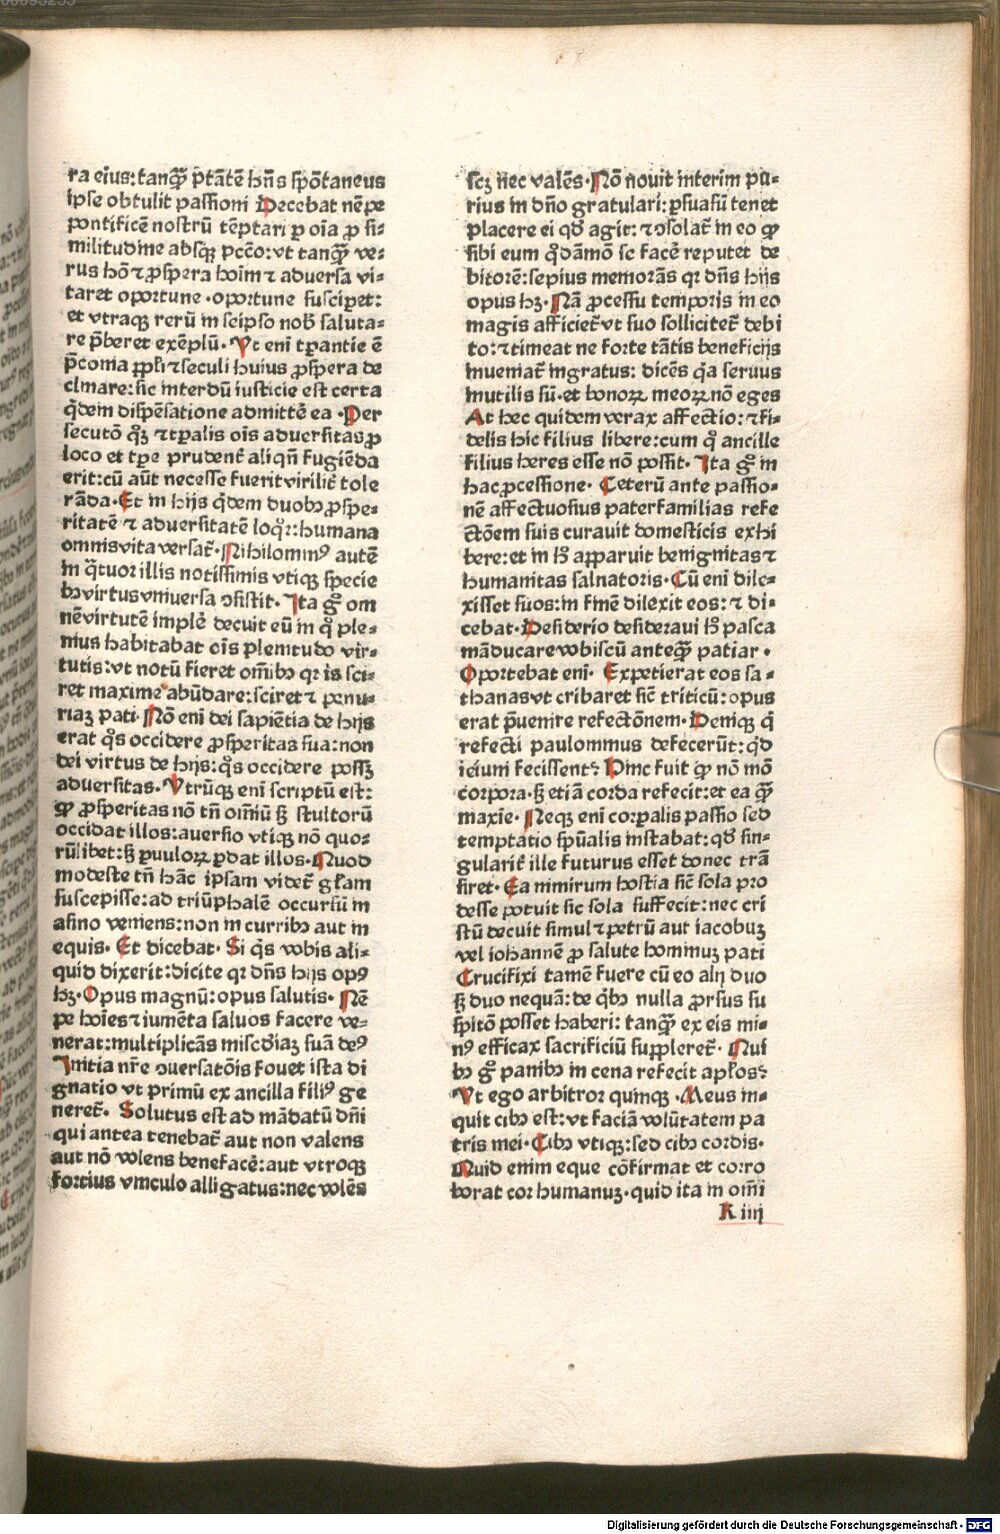 ra eius: tanqȝ p̄tātē hn̄s spōtaneus
ipse obtulit passioni Decebat nēpe
pontificē nostrū tēptari ꝑ oīa ꝓ si-
militudine absqȝ pccō: vt tanqȝ ve-
rus hō ⁊ ꝓspera hoīm ⁊ aduersa vi-
taret oportune · oportune susciꝑet:
et vtraqȝ rerū in seipso nob̄ saluta-
re p̄beret exēplū · Vt eni tꝑantie ē
p̄coma ꝓpli ⁊ seculi huius ꝓspera de
clinare: sic interdū iusticie est certa
q̄dem dispēsatione admittē ea · Per
secutō qȝ ⁊ tꝑalis oīs aduersitas ꝓ
loco et tꝑe prudent̄ aliqn̄ fugiēda
erit: cū aūt necesse fuerit virilit̄ tole
rāda · Et in hijs q̄dem duobꝫ ꝓspe-
ritatē ⁊ aduersitatē loq̄r: humana
omnis vita versat̄ · Nihilominꝰ autē
in q̄tuor illis notissimis vtiqȝ specie
bꝫ virtus vniuersa ↄsistit · Ita gͦ om
nē virtutē implē decuit eū in qͦ ple-
nius habitabat oīs plenitudo vir-
tutis: vt notū fieret omībꝫ qr is sci-
ret maxime abūdare: sciret ⁊ penu-
riaȝ pati · Nō eni dei sapiētia de hijs
erat qͦs occidere ꝓsperitas sua: non
dei virtus de hijs: qͦs occidere possȝ
aduersitas · Vtrūqȝ eni scriptū est:
ꝙ ꝓsperitas nō tn̄ omīū sȝ stultorū
occidat illos: auersio vtiqȝ nō quo-
rūlibet: sȝ ꝑuuloꝝ ꝑdat illos · Quod
modeste tn̄ hāc ipsam videt̄ gl̄am
suscepisse: ad triūphalē occursū in
asino veniens: non in curribꝫ aut in
equis · Et dicebat · Si q̄s vobis ali-
quid dixerit: dicite qr dn̄s hijs opꝰ
hȝ · Opus magnū: opus salutis · Nē
pe hoīes ⁊ iumēta saluos facere ve-
nerat: multiplicās misc̄diaȝ suā deꝰ
Initia nr̄e ↄuersatōis fouet ista di
gnatio vt primū ex ancilla filiꝰ ge
neret̄ · Solutus est ad mādatū dn̄i
qui antea tenebat̄ aut non valens
aut nō volens benefacē: aut vtroqȝ
fortius vinculo alligatus: nec volēs
scȝ nec valēs · Nō nouit interim pu-
rius in dn̄o gratulari: ꝑsuasū tenet
placere ei qd̄ agit: ⁊ ↄsolat̄ in eo ꝙ
sibi eum q̄dāmō se facē reputet de
bitorē: sepius memorās qr dn̄s hijs
opus hȝ · Nā ꝓcessu temporis in eo
magis afficiet̄ vt suo sollicitet̄ debi
to: ⁊ timeat ne forte tātis beneficijs
inueniat̄ ingratus: dicēs q̄a seruus
inutilis sū · et bonoꝝ meoꝝ nō eges
At hec quidem verax affectio: ⁊ fi-
delis hic filius libere: cum qͦ ancille
filius heres esse nō possit · Ita gͦ in
hac ꝓcessione · Ceterū ante passio-
nē affectuosius paterfamilias refe
ctōem suis curauit domesticis exhi
bere: et in hͦ apparuit benignitas ⁊
humanitas salnatoris · Cū eni dile-
xisset suos: in finē dilexit eos: ⁊ di-
cebat · Desiderio desideraui hͦ pasca
māducare vobiscū anteqȝ patiar ·
Oportebat eni · Expetierat eos sa-
thanas vt cribaret sic̄ triticū: opus
erat p̄uenire refectōnem · Deniqȝ q̄
refecti paulominus defecerūt: qͥd
ieiuni fecissent? Hinc fuit ꝙ nō mō
corpora · sȝ etiā corda refecit: et ea qȝ
maxīe · Neqȝ eni corꝑalis passio sed
temptatio sp̄ualis instabat: qd̄ sin-
gularit̄ ille futurus esset donec trā
siret · Ea nimirum hostia sic̄ sola pro
desse potuit sic sola suffecit: nec cri
stū decuit simul ⁊ petrū aut iacobuȝ
vel iohannē ꝓ salute hominuȝ pati
Crucifixi tamē fuere cū eo alij duo
sȝ duo nequā: de q̄bꝫ nulla ꝓrsus su
spitō posset haberi: tanqȝ ex eis mi-
nꝰ efficax sacrificiū suppleret̄ · Qui
bꝫ gͦ panibꝫ in cena refecit apl̄os?
Vt ego arbitror quinqȝ · Meus in-
quit cibꝫ est: vt faciā volūtatem pa
tris mei · Cibꝫ vtiqȝ: sed cibꝫ cordis ·
Quid enim eque cōfirmat et corro
borat cor humanuȝ · quid ita in omī
K iiij
Digitalisierung gefördert durch die Deutsche Forschungsgemeinschaft - DFG